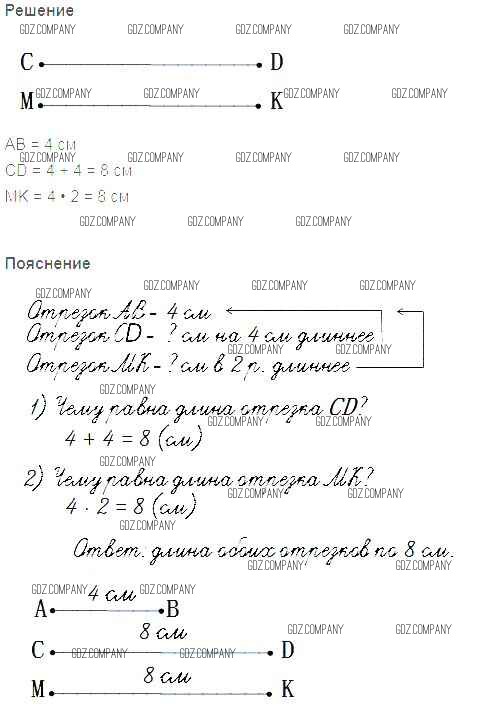 Решение
GDZ.COMPANY GDZ.COMPANY GDZ.COMPANY GDZ.COMPANY
C D
GDZ.COMPANY GDZ.COMPANY GDZ.COMPANY GDZ.COMPANY
M K
AB = 4 см
GDZ.COMPANY GDZ.COMPANY GDZ.COMPANY GDZ.COMPANY
CD = 4 + 4 = 8 см
MK = 4 • 2 = 8 см
GDZ.COMPANY GDZ.COMPANY GDZ.COMPANY
Пояснение
GDZ.COMPANY GDZ.COMPANY GDZ.COMPANY GDZ.COMPANY
Отрезок AB - 4 см
Отрезок CD - ? см на 4 см длиннее
GDZ.COMPANY GDZ.COMPANY
Отрезок MK - ? см в 2 р. длиннее
GDZ.COMPANY
1) Чему равна длина отрезка CD?
GDZ.COMPANY GDZ.COMPANY
4 + 4 = 8 (см)
GDZ.COMPANY
2) Чему равна длина отрезка MK?
GDZ.COMPANY GDZ.COMPANY
4 · 2 = 8 (см)
GDZ.COMPANY
Ответ. длина обоих отрезков по 8 см.
GDZ.COMPANY GDZ.COMPANY
GDZ.COMPANY 4 см GDZ.COMPANY
A B
8 см GDZ.COMPANY GDZ.COMPANY
C GDZ.COMPANY GDZ.COMPANY D
8 см
M K